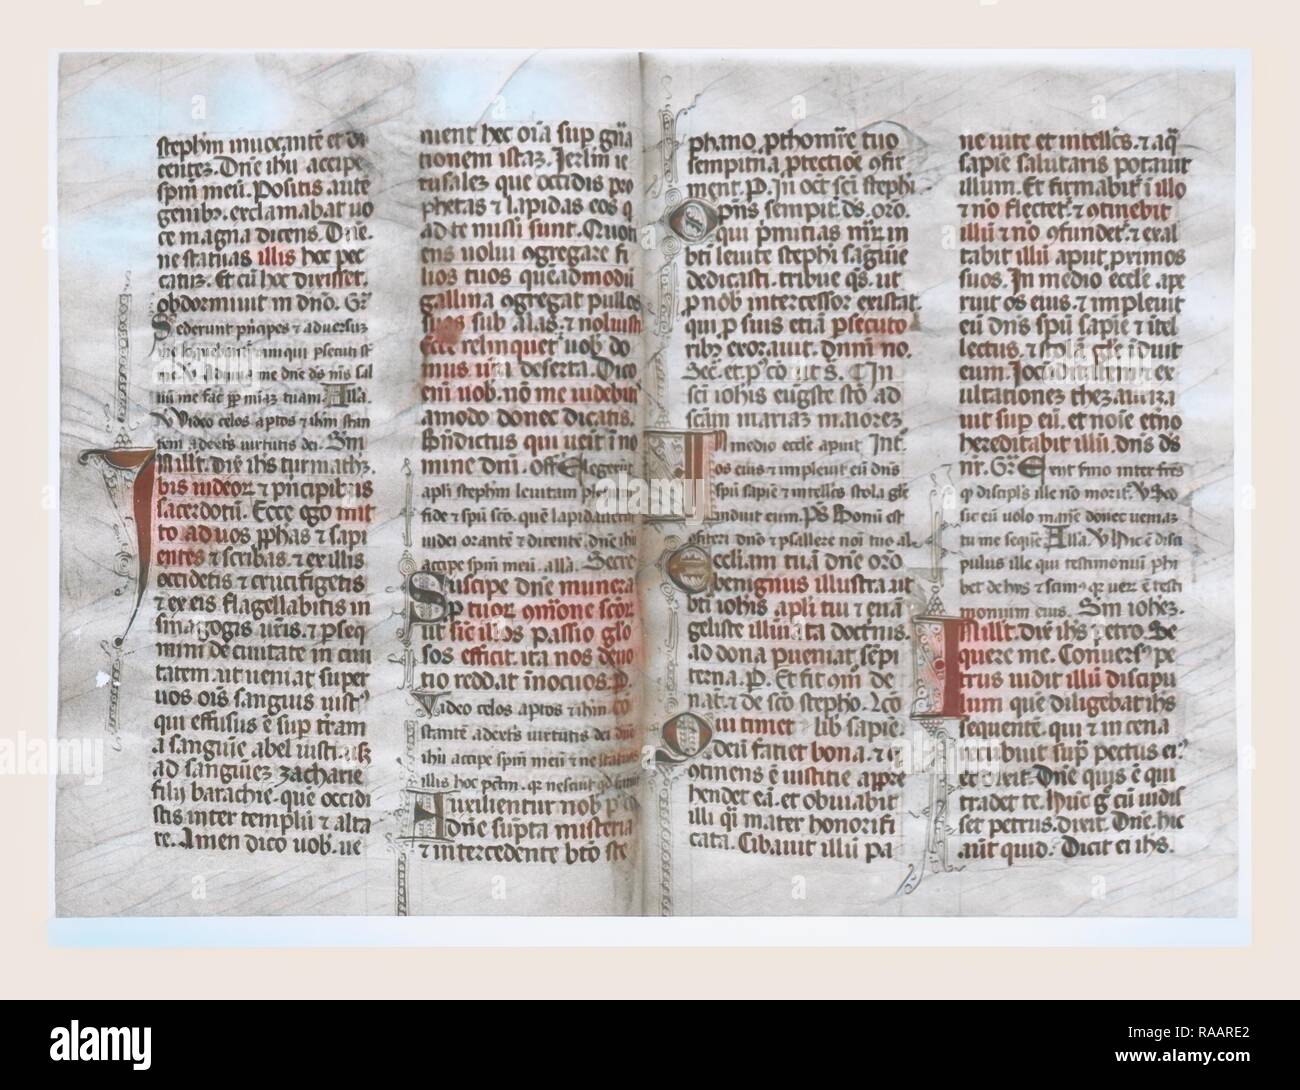 stephm inuocante et di
centez. Dne ihu accipe
spm meu. Positis aute
genibz. exclamabat uo
ce magna dicens. Dne.
ne statuas illis hoc pec
catuz. Et cu hoc dixisset.
obdormiuit in dno. Gr
Sederunt pncipes & aduersuz
me loquebantur
me. V. Adiuua me dne ds ms sal
uu me fac pp miaz tuam. Alla.
V. Video celos aptos & ihm stan
tem a dextis uirtutis dei. Sm
In illt. Dic ihs turmathz.
bis iudeor & pncipibus
sacerdotu. Ecce ego mit
to ad uos pphas & sapi
entes & scribas. & ex illis
occidetis & crucifigetis
& ex eis flagellabitis in
synagogis uris. & pseq
mini de ciuitate in ciui
tatem. ut ueniat super
uos ois sanguis iust
qui effusus e sup tram
a sanguie abel iusti usk
ad sanguiez zacharie
filij barachie. que occidi
stis inter templu & alta
re. Amen dico uob. ue
nient hec oia sup gna
tionem istaz. Jerlm ie
rusalez que occidis pro
phetas & lapidas eos q
ad te missi sunt. Quoti
ens uolui ogregare fi
lios tuos queadmodu
gallina ogregat pullos
suos sub alas. & noluisti
Ecce relinquet uob do
mus ura deserta. Dico
eni uob. no me uidebit
amodo donec dicatis.
Bndictus qui ueit i no
mine dni. Off Elegerut
apli stephm leuitam plenum
fide & spu sco. que lapidauerut
iudei orante & dicente. dne ihu
accipe spm meu. alla. Secre
Suscipe dne munera
p tuor omione scor
ut sic illos passio glo
sos efficit. ita nos deuo
tio reddat inocuos. p.
Video celos aptos & ihm
stante a dextis uirtutis dei
ihu accipe spm meu & ne statuas
illis hoc pctm. qr nesciut qd
Auxilientur nob p
dne supta misteria
& intercedente bto ste
phano. pthomre tuo
sempitna ptectioe ofir
ment. P. In oct sci stephi
Opns sempit. ds. oro.
qui pmitias mr in
bti leuite stephi saguie
dedicasti. tribue qs. ut
p nob intercessor existat.
qui p suis etia psecuto
ribz exorauit. dnm no.
Sec. et pco ut s. In
sci iohis eugste sto ad
scam mariaz maiorez
In medio eccle apuit Int.
os eius & impleuit eu dns
spu sapie & intellcs stola gle
induit eum. Ps Bonu est
ofiteri dno & psallere noi tuo al
Eccliam tua dne oro.
benignius illustra ut
bti iohis apli tui & eua
geliste illuiata doctnis.
ad dona pueniat sepi
terna. p. Et fit om de
nat. & de sco stepho. Lco
Qui timet lib sapie.
deu faciet bona. & q
otinens e iusticie appre
hendet ea. et obuiabit
illi qi mater honorifi
cata. Cibauit illu pa
ne uite et intellcs. & aq
sapie salutaris potauit
illum. Et firmabit i illo
& no flectet. & otinebit
illu & no ofundet. & exal
tabit illu aput primos
suos. In medio eccle ape
ruit os eius. & impleuit
eu dns spu sapie & itel
lectus. & stola gle iduit
eum. Jocuditatem & ex
ultationez thezaurizа
uit sup eu. et noie etno
hereditabit illu. dns ds
nr. Gr Exiit smo inter frés
q discipls ille no morit. V. Sz
sic eu uolo mane donec uemaz
tu me sequé. Alla. V. Hic e disci
pulus ille qui testimoniu phi
bet de hys & scimus qr ueru e testi
monium eius. Sm iohez.
In illt. dic ihs petro. Se
quere me. Conuers pe
trus uidit illu discipu
lum que diligebat ihs
sequente. qui & in cena
recubuit supr pectus ei
et dixit. Dne quis e qui
tradet te. Hunc g cu uidis
set petrus. dixit. Dne. hic
aut quid. Dicit ei ihs.
alamy
www.alamy.com
Image ID: RAARE2